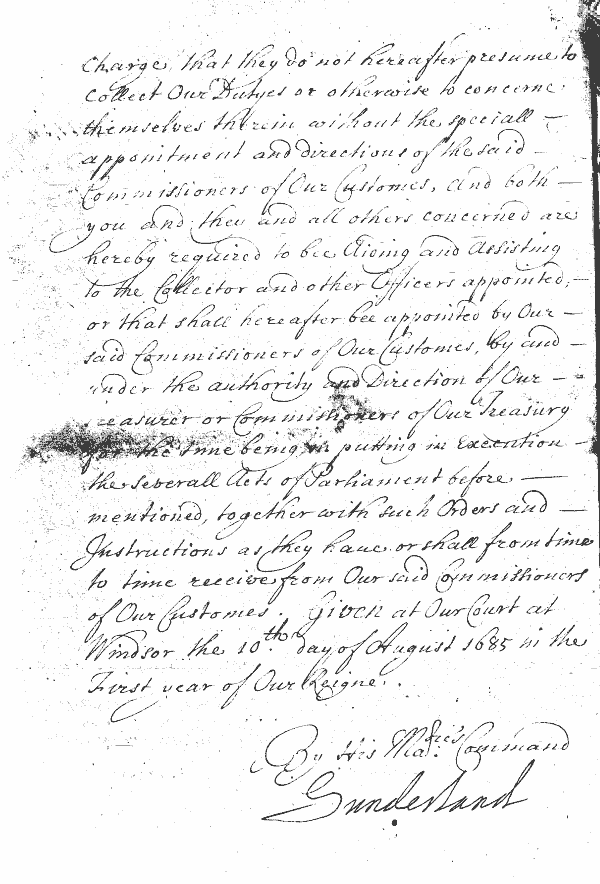 charge, that they do not hereafter presume to
Collect Our Dutyes or otherwise to concerne
themselves therein without the speciall —
appointment and directions of the said —
Commissioners of Our Customes, And both —
you and they and all others concerned are
hereby required to bee Aiding and Assisting
to the Collector and other Officers appointed, —
or that shall hereafter bee appointed by Our —
said Commissioners of Our Customes, by and —
under the authority and Direction of Our —
Treasurer or Commissioners of Our Treasury
for the time being, in putting in Execution —
the severall Acts of Parliament before —
mentioned, together with such Orders and —
Instructions as they have or shall from time
to time receive from Our said Commissioners
of Our Customes. Given at Our Court at
Windsor the 10th. day of August 1685 in the
First year of Our Reigne.
By His Ma.ties Command
Sunderland